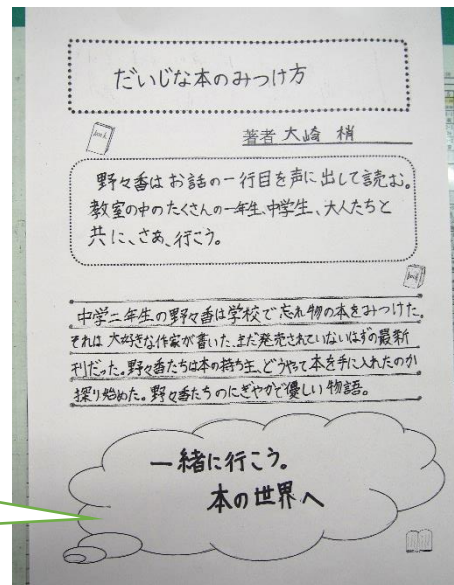 だいじな本のみつけ方
著者 大崎 梢
野々香はお話の一行目を声に出して読む。
教室の中のたくさんの一年生、中学生、大人たちと
共に、さあ、行こう。
中学二年生の野々香は学校で忘れ物の本をみつけた。
それは大好きな作家が書いた、まだ発売されていないはずの最新
刊だった。野々香たちは本の持ち主、どうやって本を手に入れたのか
探り始めた。野々香たちのにぎやかで優しい物語。
一緒に行こう。
本の世界へ